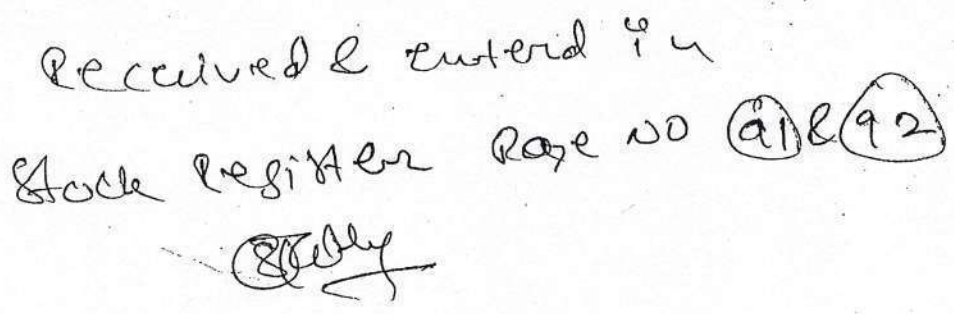 Received & enterid in
Stock Register Page NO 91 & 92